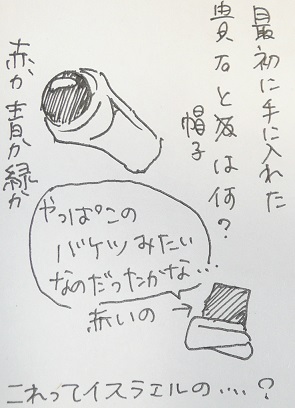 最初に手に入れた
貴石と皮は何?
帽子
赤か青か緑か
やっぱこの
バケツみたい
なのだったかな…
赤いの→
これってイスラエルの....?